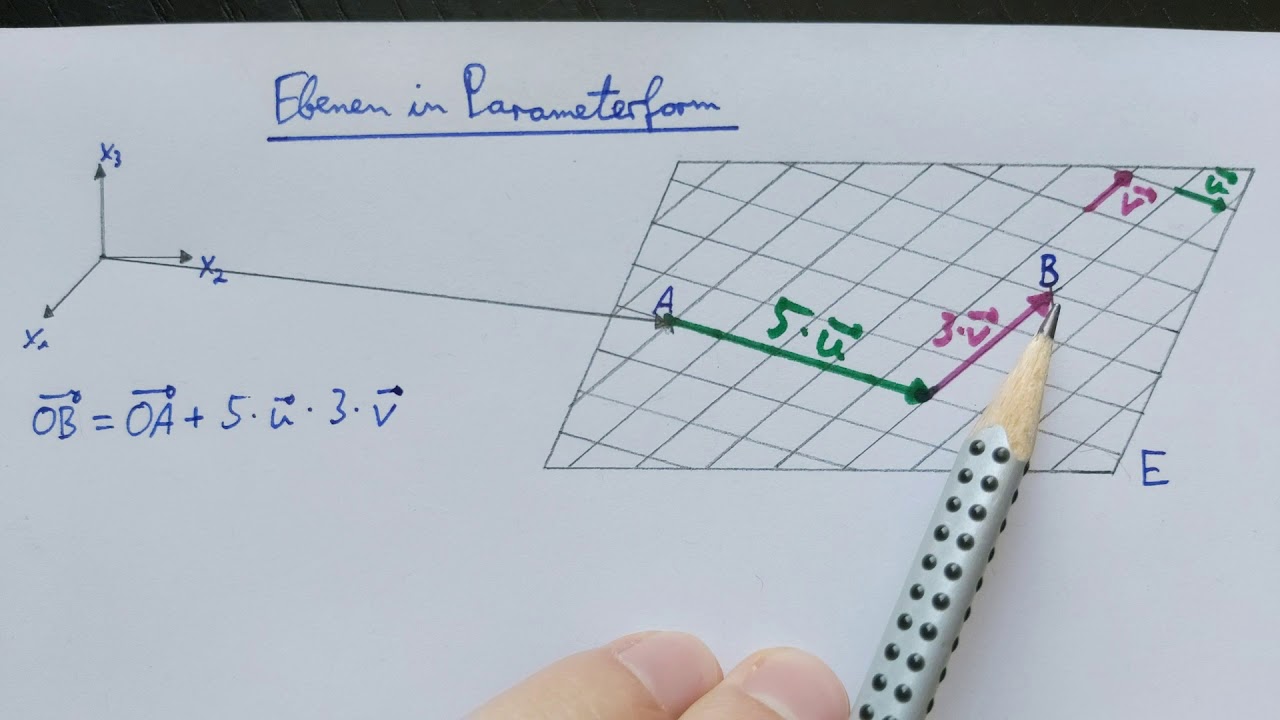 Ebenen in Parameterform
x₃
x₂
x₁
v⃗
u⃗
A
B
5·u⃗
3·v⃗
O͞B⃗ = O͞A⃗ + 5·u⃗·3·v⃗
E